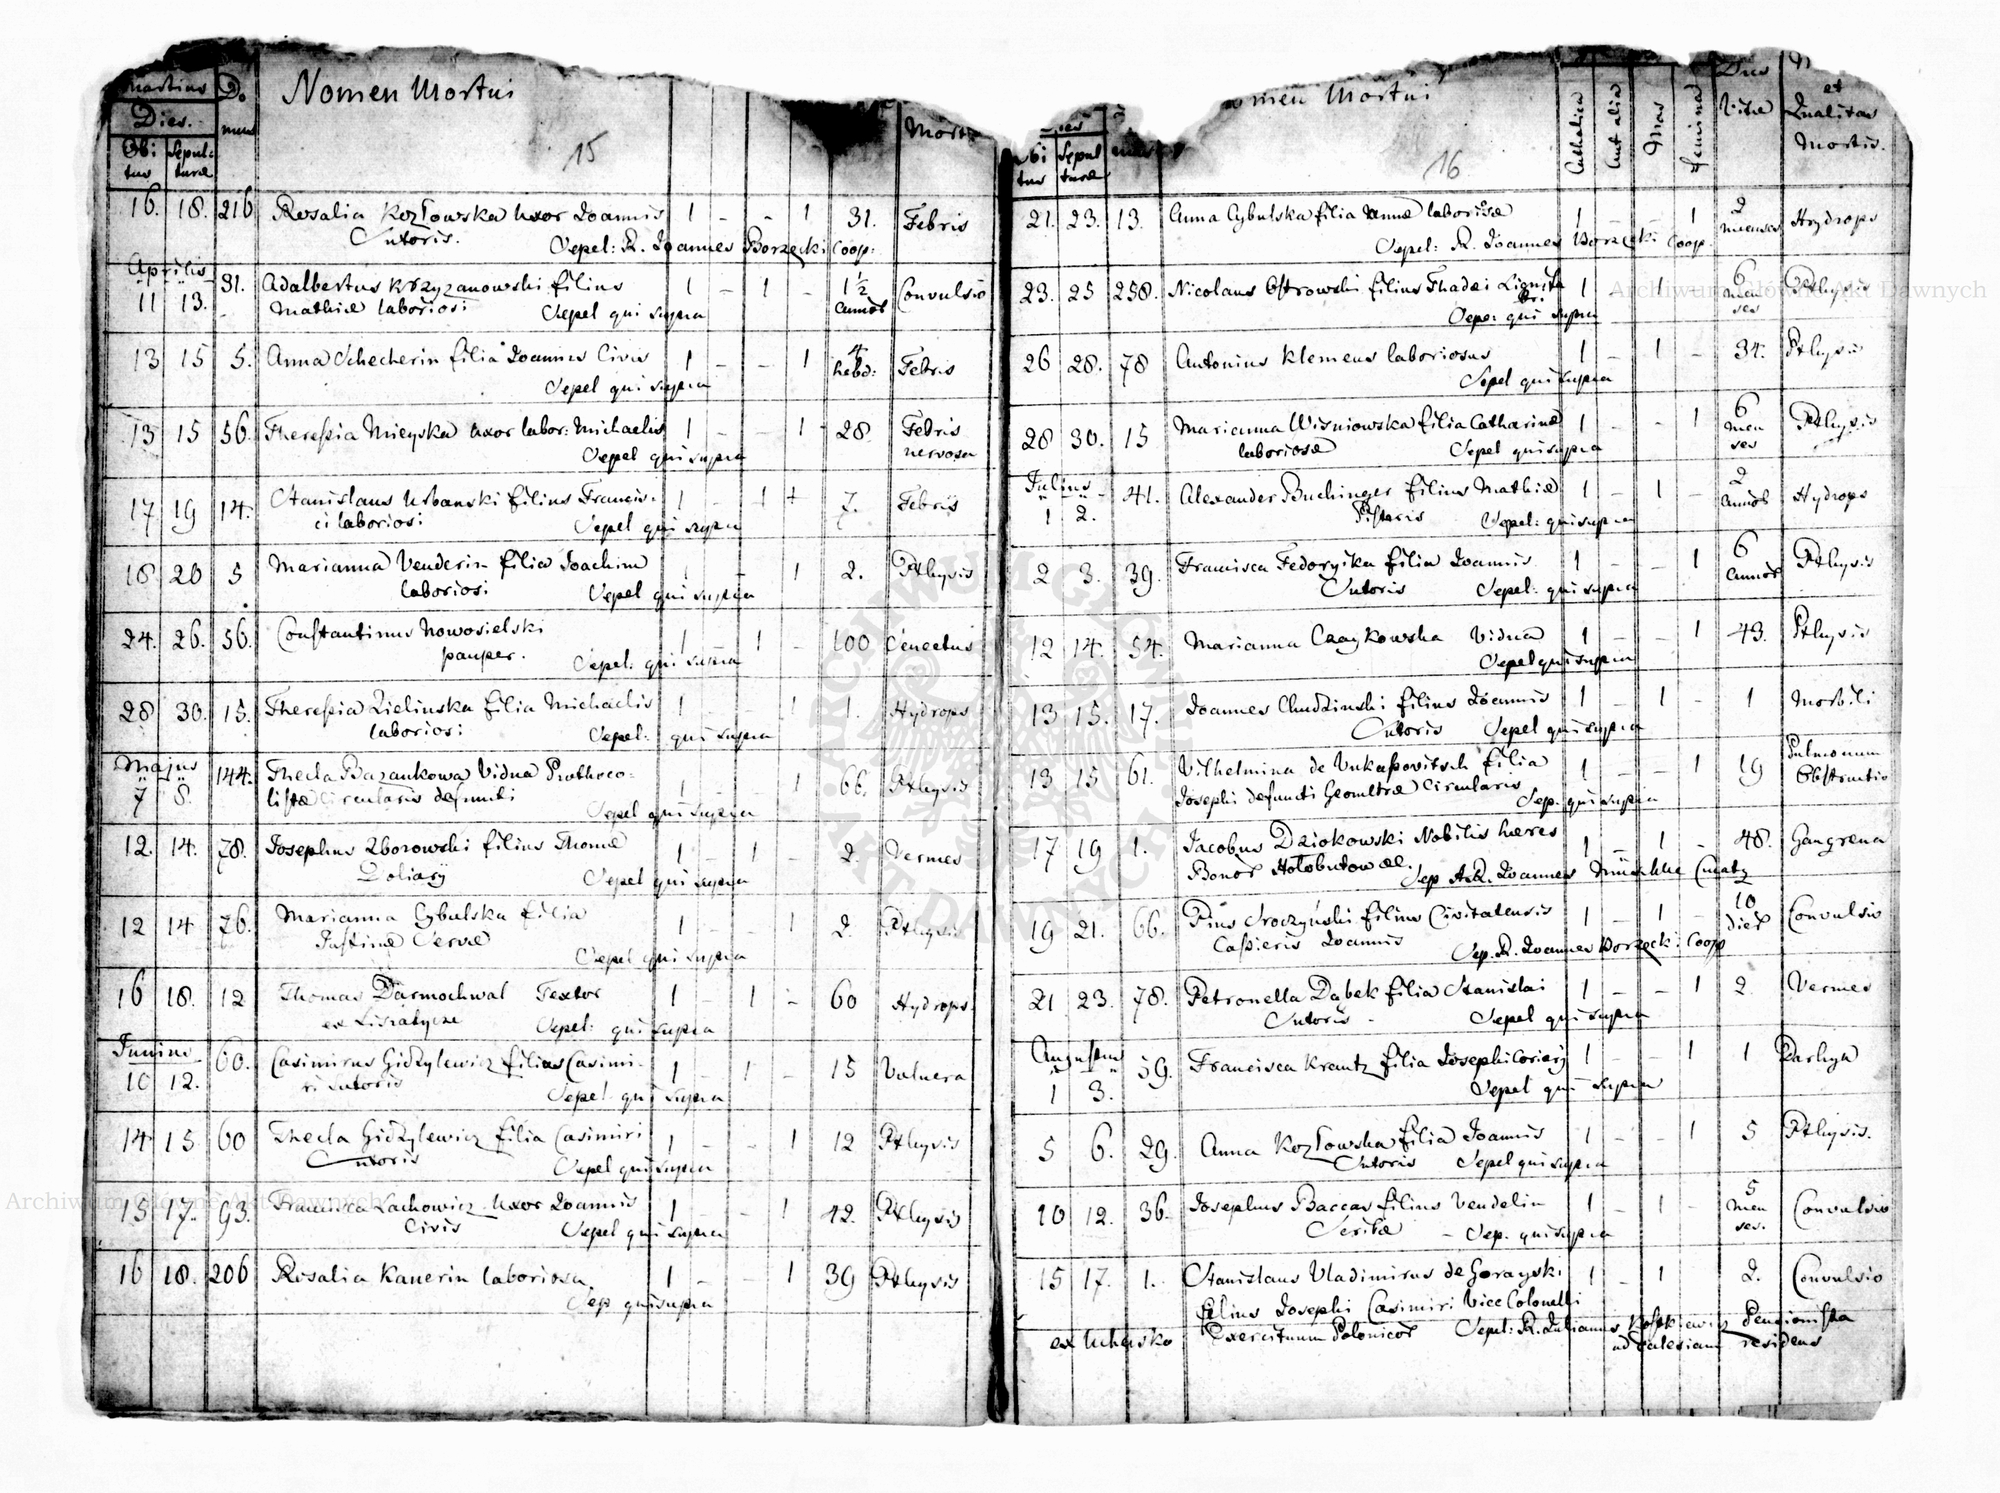 Martius Do Nomen Mortui
Dies. mus Mort
Obi Sepul: 15
tus turæ
16. 18. 216 Rosalia Kozłowska uxor Joannis 1 - - 1 31. Febris
Sutoris. Sepel: R. Joannes Borzęcki Coop:
Aprilis 31. Adalbertus Krzyzanowski filius 1 - 1 - 1½ Convulsio
11 13. Mathiæ laboriosi Sepel qui supra annor
13 15 5. Anna Schecherin filia Joannis Civis 1 - - 1 4 hebd: Febris
Sepel qui supra
13 15 56. Theresia Mieyska uxor labor: Michaelis 1 - - 1 28 Febris
Sepel qui supra nervosa
17 19 14. Stanislaus Urbanski filius Francis- 1 - 1 + 7. Febris
ci laboriosi Sepel qui supra
18 20 5 Marianna Venderin filia Joachim 1 1 2. Pthysis
laboriosi Sepel qui supra
24. 26. 56. Constantinus Nowosielski 1 1 - 100 Senectus
pauper. Sepel: qui supra
28 30. 15. Theresia Zielinska filia Michaelis 1 - - 1 1. Hydrops
laboriosi Sepel: qui supra
Majus 144. Thecla Bazankowa Vidua Prothoco- 1 - - 1 66. Pthysis
7 8. listæ Circularis defuncti Sepel qui supra
12. 14. 78. Josephus Zborowski filius Thomæ 1 - 1 - 2. Vermes
Doliarij Sepel qui supra
12 14 76. Marianna Cybulska filia 1 - - 1 2. Pthysis
Justinæ Servæ Sepel qui supra
16 18. 12 Thomas Darmochwal Textor 1 1 - 60 Hydrops.
ex Sepel: qui supra
Junius 60. Casimirus Gidzylewicz filius Casimi- 1 - 1 - 15 Vulnera
10 12. ri sutoris Sepel qui supra
14 15 60 Thecla Gidzylewicz filia Casimiri 1 - - 1 12 Pthysis
Sutoris Sepel qui supra
15 17. 93. Francisca Lachowicz uxor Joannis 1 - - 1 42. Pthysis
Civis Sepel qui supra
16 18. 206 Rosalia Kanerin laboriosa. 1 - - 1 39 Pthysis
Sep qui supra
Dies men Mortui Catholica Aut alia Mas Femina Dies Vitæ et Qualitas Mortis.
Obi Sepul mus 16
tus turæ
21. 23. 13. Anna Cybulska filia Annæ laboriosæ 1 - - 1 2 menses Hydrops
Sepel: R. Joannes Borzęcki Coop.
23. 25 258. Nicolaus Ostrowski filius Thadæi 1 1 - 6 menses Pthysis
Sepe: qui supra
26 28. 78 Antonius Klemens laboriosus 1 - 1 - 34. Pthysis
Sepel qui supra
28 30. 15 Marianna Wisniowska filia Catharinæ 1 - - 1 6 menses Pthysis
laboriosæ Sepel qui supra
Julius 41. Alexander Buchinger filius Mathiæ 1 - 1 - 2 annor Hydrops
1 2. Pistoris Sepel: qui supra
2 3. 39. Francisca Fedorzika filia Joannis 1 - - 1 6 annor Pthysis
Sutoris Sepel: qui supra
12 14. 54. Marianna Czaykowska Vidua 1 - - 1 43. Pthysis
Sepel qui supra
13 15. 17. Joannes Chudzinski filius Joannis 1 1 - 1 Morbili
Sutoris Sepel qui supra
13 15 61. Vilhelmina de Vukassovitsch filia 1 - - 1 19 Pulmonum
Josephi defuncti Geometræ Circularis Sep. qui supra Obstructio
17 19 1. Jacobus Dziokowski Nobilis hæres 1 - 1 - 48. Gangrena
Bonor Hołobutow æc. Sep A.R. Joannes
19 21. 66. Pius Sroczyński filius Civitatensis 1 - 1 - 10 dier Convulsio
Cassieris Joannis Sep. R. Joannes Borzęcki Coop
21 23. 78. Petronella Dąbek filia Stanislai 1 - - 1 2. Vermes
Sutoris - Sepel qui supra
Augustus 59. Francisca Krantz filia Josephi Coriarij 1 - 1 1
1 3. Sepel qui supra
5 6. 29. Anna Kozłowska filia Joannis 1 - - 1 5 Pthysis.
Sutoris Sepel qui supra
10 12. 36. Josephus Baccas filius Vendelin 1 - 1 - 5 menses. Convulsio
Scribæ - Sep. qui supra
15 17. 1. Stanislaus Vladimirus de Gorayski 1 - 1 2. Convulsio
filius Josephi Casimiri Vice Colonelli
ex Uhersko Exercituum Polonicor Sepel: R. Julianus Pensionista
residens
Archiwum Główne Akt Dawnych
Archiwum Główne Akt Dawnych
ARCHIWUM GŁÓWNE AKT DAWNYCH